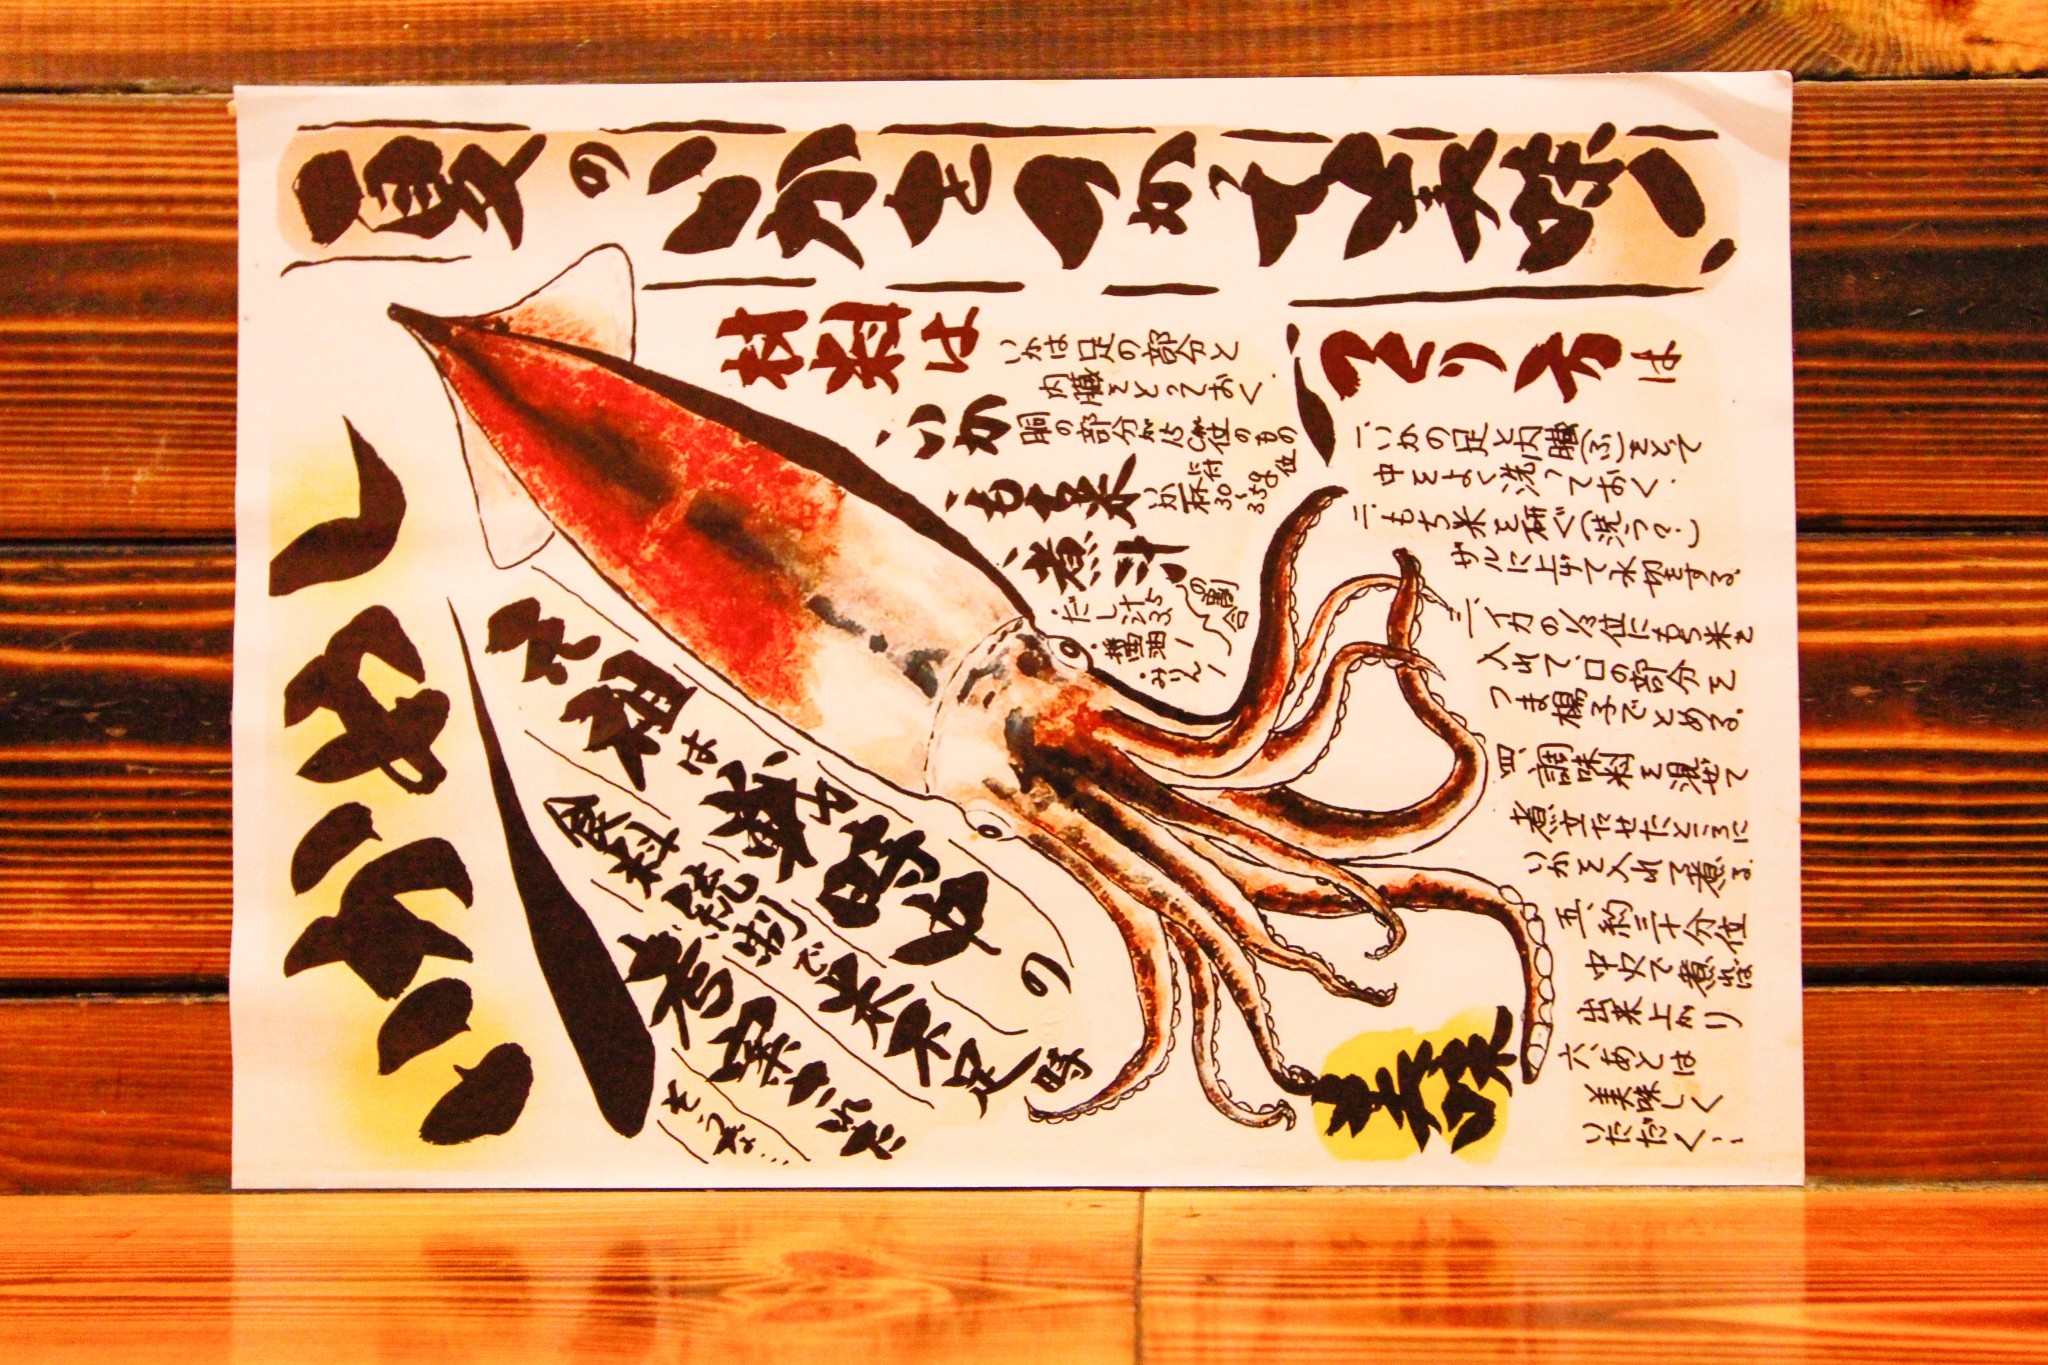 夏のいかをつめて美味い
いかめし
元祖は
食料統制で米不足
時
考案された
そうな…
材料は
いか
いかは足の部分と
内臓をとっておく。
胴の部分が15cm位のもの
もち米
いか一杯に付
30〜35g位
煮汁の割合
・だし汁5
・醤油1
・みりん1
つくり方は
一、いかの足と内臓(ふ)をとって
中をよく洗っておく。
二、もち米を研ぐ
ザルに上げて水切をする。
三、イカの
位にもち米を
入れて、口の部分を
つま楊子でとめる。
四、調味料を混ぜて
煮立たせたところに
いかを入れて煮る。
五、約三十分位
中火で煮れば
出来上がり
六、あとは
美味しく
いただく…
美味